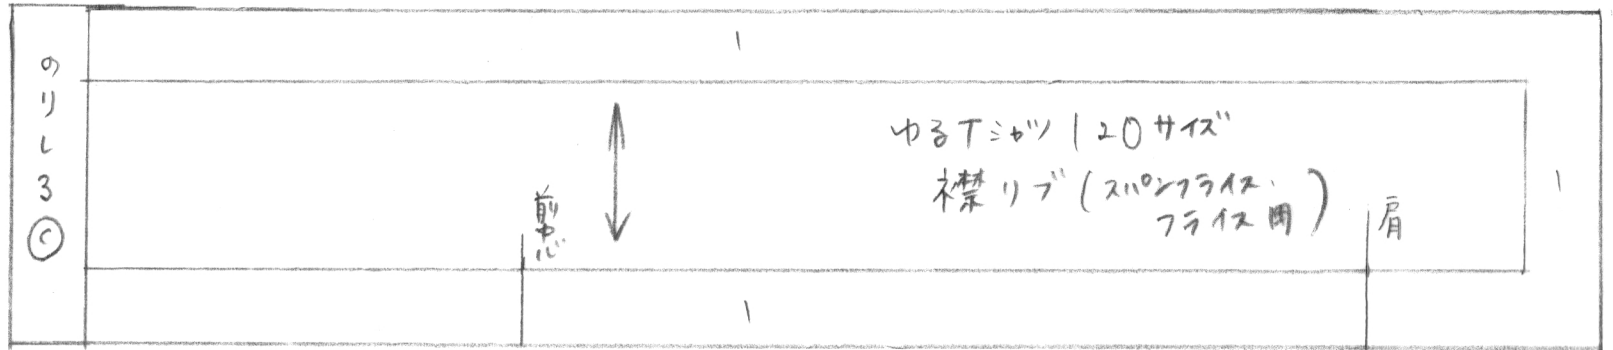 のりしろ
Ⓒ
1
ゆるTシャツ120サイズ
襟リブ(スパンフライス・
フライス用)
前中心
肩
1
1